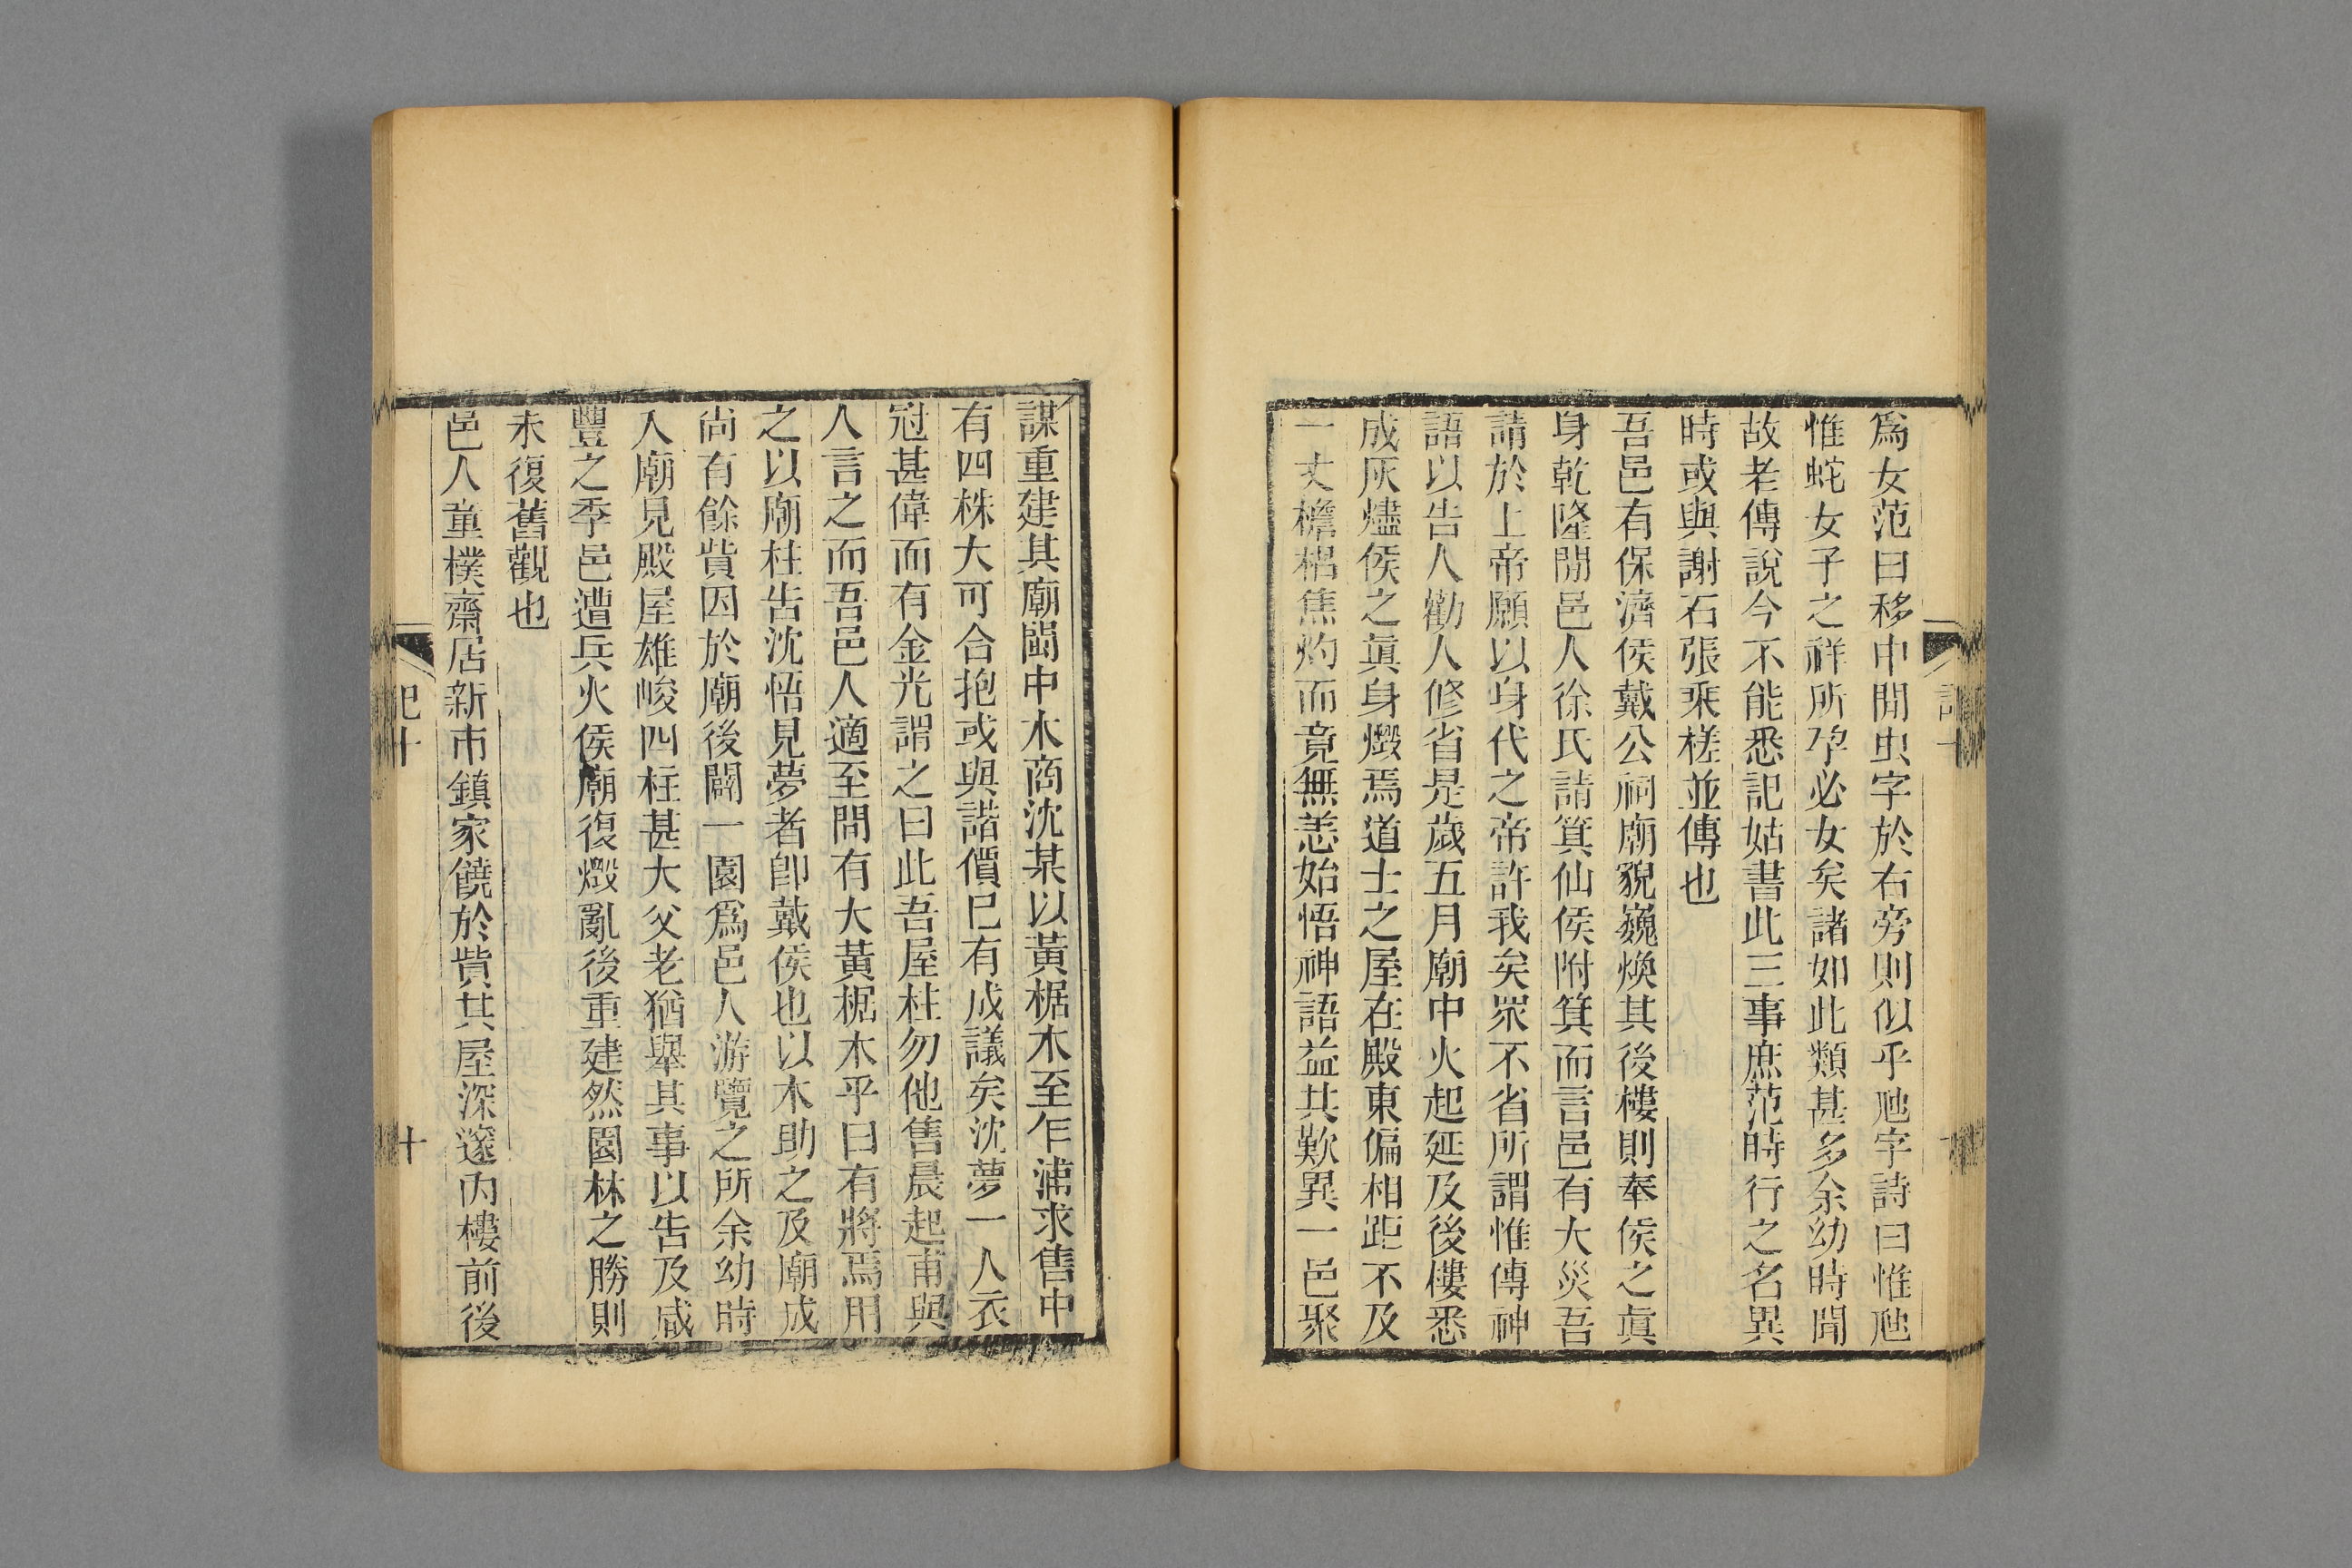 爲女范曰移中閒虫字於右旁則似乎虺字詩曰惟虺
惟蛇女子之祥所孕必女矣諸如此類甚多余幼時聞
故老傳說今不能悉記姑書此三事庶范時行之名異
時或與謝石張乘槎並傳也
吾邑有保濟侯戴公祠廟貌巍煥其後樓則奉侯之眞
身乾隆閒邑人徐氏請箕仙侯附箕而言邑有大災吾
請於上帝願以身代之帝許我矣眾不省所謂惟傳神
語以告人勸人修省是歲五月廟中火起延及後樓悉
成灰燼侯之眞身燬焉道士之屋在殿東偏相距不及
一丈檐梠焦灼而竟無恙始悟神語益共歎異一邑聚
謀重建其廟閩中木商沈某以黃椐木至乍浦求售中
有四株大可合抱或與諧價已有成議矣沈夢一人衣
冠甚偉而有金光謂之曰此吾屋柱勿他售晨起甫與
人言之而吾邑人適至問有大黃椐木乎曰有將焉用
之以廟柱告沈悟見夢者卽戴侯也以木助之及廟成
尚有餘貲因於廟後闢一園爲邑人游覽之所余幼時
入廟見殿屋雄峻四柱甚大父老猶舉其事以告及咸
豐之季邑遭兵火侯廟復燬亂後重建然園林之勝則
未復舊觀也
邑人童樸齋居新市鎮家饒於貲其屋深邃內樓前後
記十
十